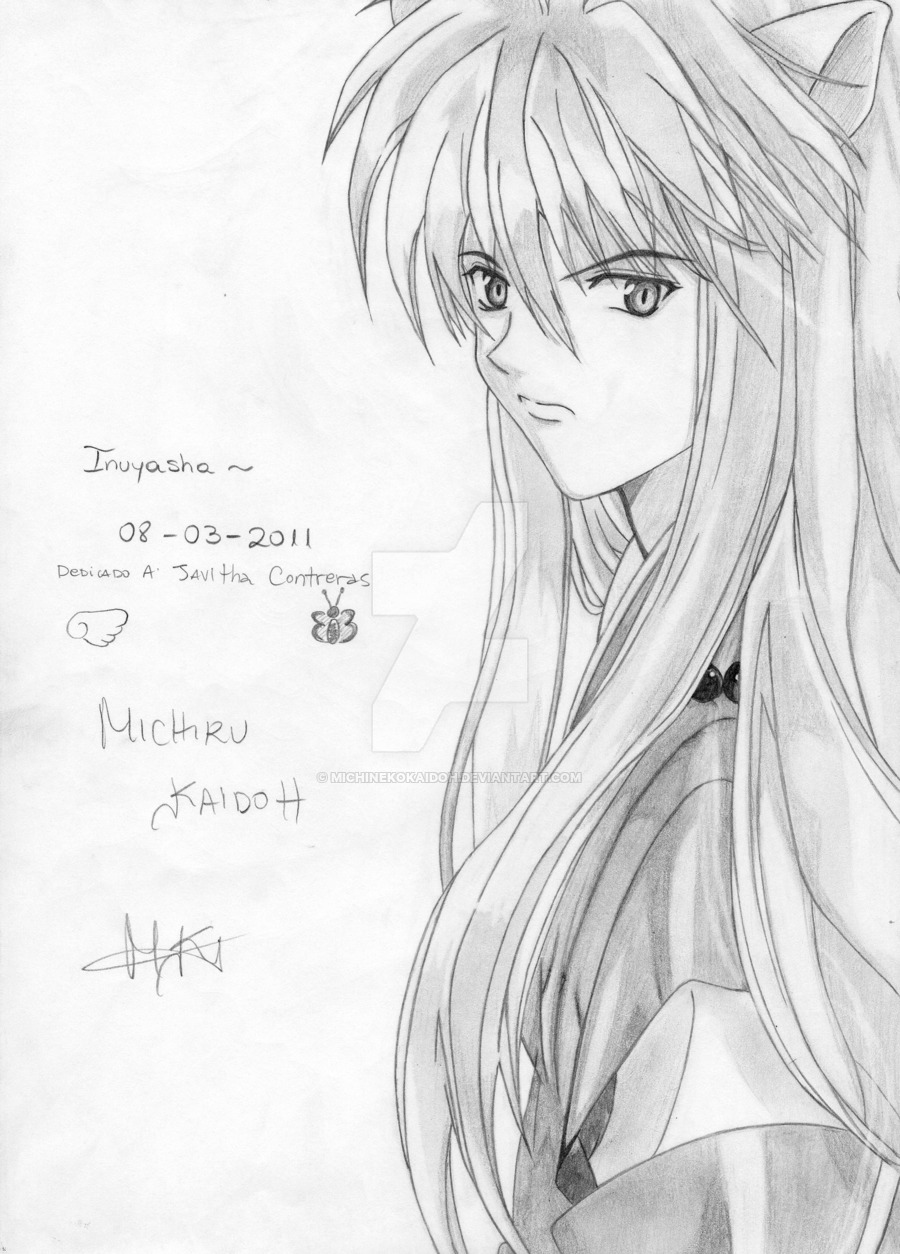 Inuyasha ~
08-03-2011
Dedicado A: Javitha Contreras
Michiru
Kaidoh
MK
© MICHINEKOKAIDOH.DEVIANTART.COM